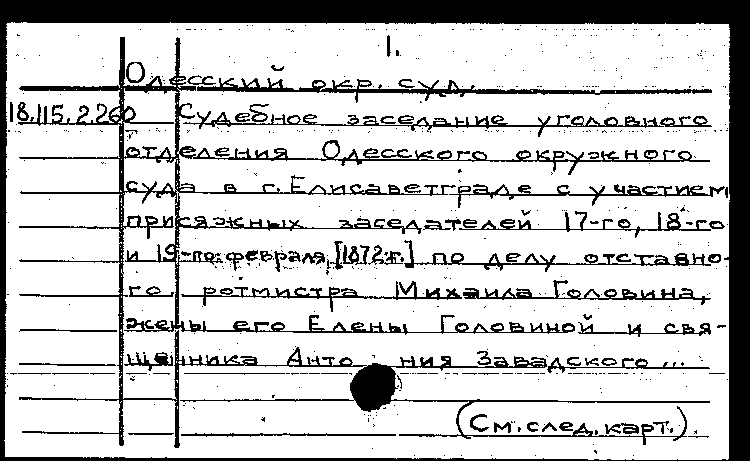 1.
Одесский окр. суд.
18.115.2.260 Судебное заседание уголовного
отделения Одесского окружного
суда в г. Елисаветграде с участием
присяжных заседателей 17-го, 18-го
и 19-го февраля [1872 г.] по делу отставно-
го ротмистра Михаила Головина,
жены его Елены Головиной и свя-
щенника Анто ния Завадского...
(См. след. карт.).